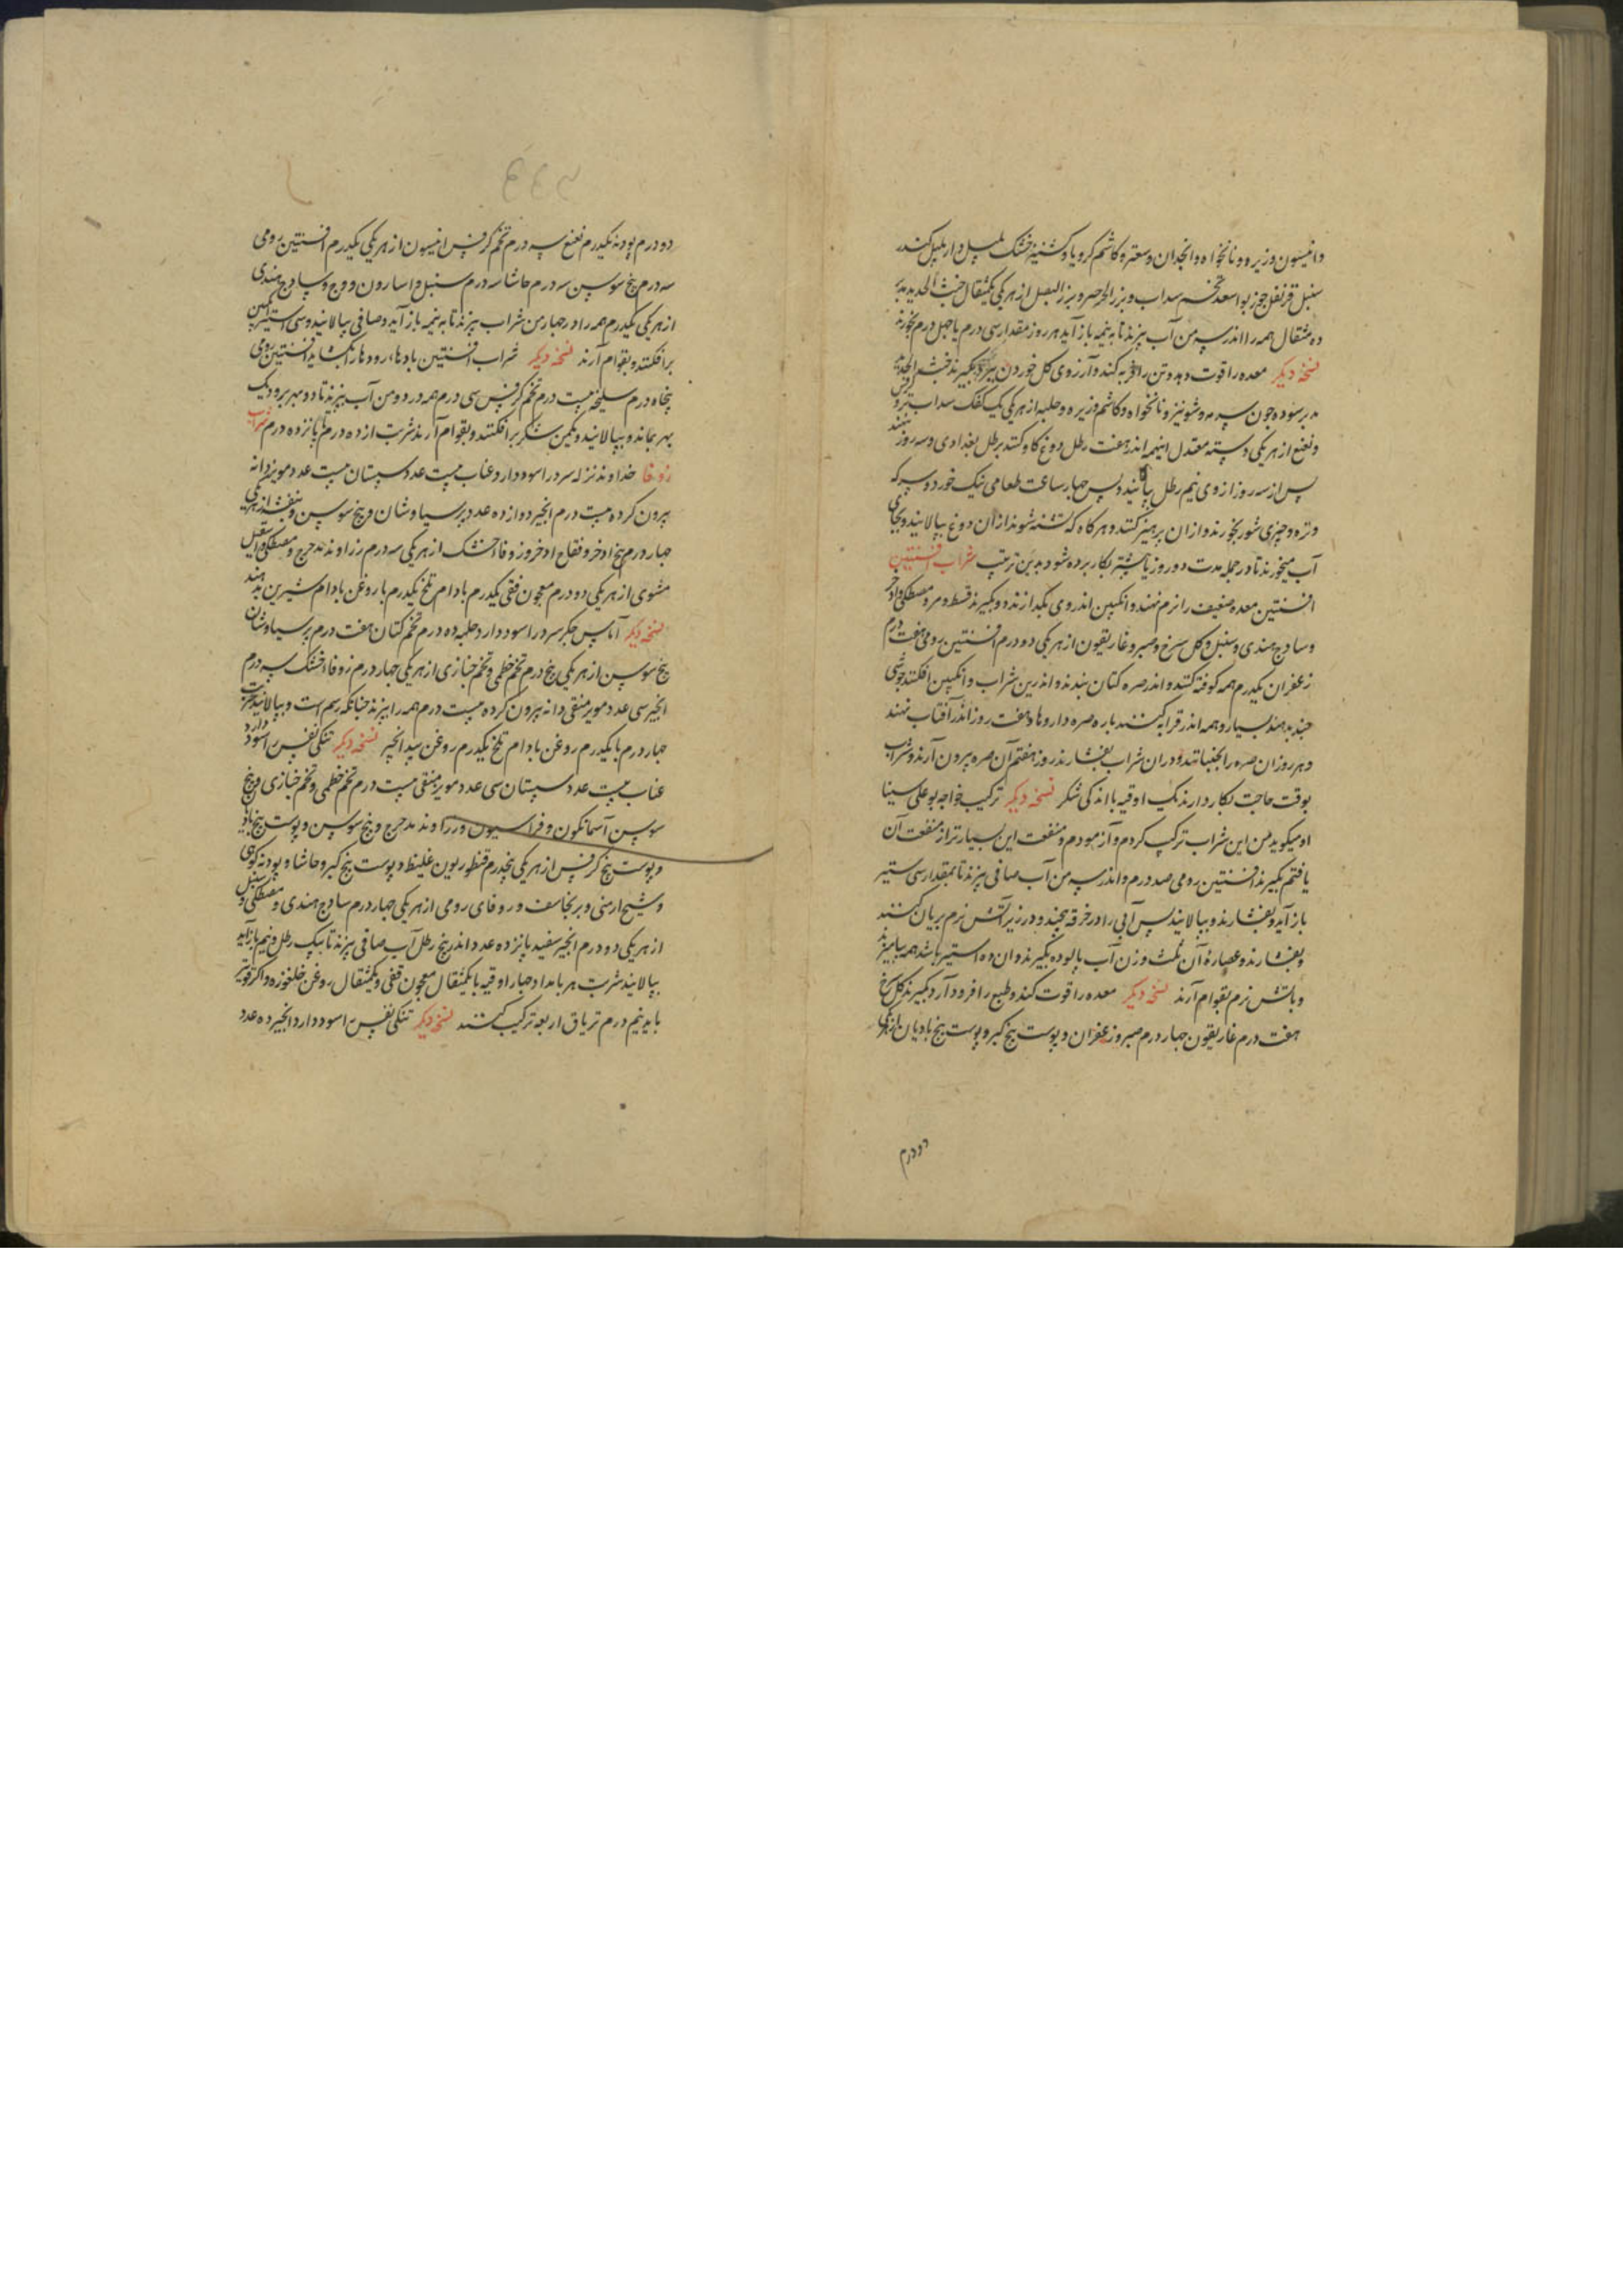 وانیسون وزیره ونانخواه وانجدان وسعتر وکاشم کرویا وکشنیز خشک پلپل دارپلپل کندر
سنبل قرنفل جوزبوا سعد تخم سداب وبزر الجرجیر وبزر البصل از هر یکی یکمثقال خبث الحدید مدبر
ده مثقال همه را اندر سه من آب بپزند تا به نیمه باز آید هر روز مقدار سی درم یا چهل درم بخورند
نسخه دیکر معده را قوت دهد وتن را فربه کند وآرزوی کل خوردن ببرد بکیرند خبث الحدید
مدبر سوده چون سرمه وشونیز ونانخواه وکاشم وزیره وحلبه از هر یکی یک کفک سداب تر و
ونعنع از هر یکی دسته معتدل اینهمه اندر هفت رطل دوغ کاو کنند برطل بغدادی وسه روز بنهند
پس از سه روز از وی نیم رطل بپالایند وپس چهار ساعت طعامی نیک خورد وسرکه
وتره وچیزی شور بخورند وازان پرهیز کنند وهرکاه که تشنه شوند ازان دوغ بپالایند وبجای
آب میخورند تا در جمله مدت دو روز یا بیشتر بکار برده شود بدین ترتیب شراب افسنتین
افسنتین معده ضعیف را نرم نهند وانکبین اندر وی بکدازند وبکیرند قسط ومر ومصطکی واذخر
وساذج هندی وسنبل وکل سرخ وصبر وغاریقون از هر یکی دو درم افسنتین رومی هفت درم
زعفران یکدرم همه کوفته کنند واندر صره کتان بندند واندرین شراب وانکبین افکنند جوشی
چند بدهند بسیار وهمه اندر قرابه کنند با صره داروها وهفت روز اندر آفتاب نهند
وهر روز ان صره را بجنبانند ودران شراب بفشارند روز هفتم آن صره بیرون آرند وشراب
بوقت حاجت بکار دارند یک اوقیه با اندکی شکر نسخه دیکر ترکیب خواجه بوعلی سینا
او میکوید من این شراب ترکیب کردم وآزمودم ومنفعت این بسیارتر از منفعت آن
یافتم بکیرند افسنتین رومی صد درم واندر سه من آب صافی بپزند تا بمقدار سی ستیر
باز آید وبفشارند وبپالایند پس آبی را در خرقه پیچند ودر زیر آتش نرم بریان کنند
وبفشارند وعصاره آن ثلث وزن آب پالوده بکیرند وان ده استیر باشد همه بیامیزند
وباتش نرم بقوام آرند نسخه دیکر معده را قوت کند وطبع را فرود آرد بکیرند کل سرخ
هفت درم غاریقون چهار درم صبر وزعفران وپوست بیخ کبر وپوست بیخ بادیان از هر یکی
دو درم
دو درم پودنه یکدرم نعنع سه درم تخم کرفس انیسون از هر یکی یکدرم افسنتین رومی
سه درم بیخ سوسن سه درم حاشا سه درم سنبل واسارون ووج وساذج هندی
از هر یکی یکدرم همه را در چهار من شراب بپزند تا به نیمه باز آید وصافی بپالایند وسی استیر انکبین
برافکنند وبقوام آرند نسخه دیکر شراب افسنتین بادها، رودها را بکشاید افسنتین رومی
پنجاه درم سلیخه بیست درم تخم کرفس سی درم همه در دو من آب بپزند تا دو بهر برود یک
بهر بماند وبپالایند ویکمن شکر برافکنند وبقوام آرند شربت از ده درم تا پانزده درم شراب
زوفا خداوند نزله سرد را سود دارد عناب بیست عدد سپستان بیست عدد مویز دانه
بیرون کرده بیست درم انجیر دوازده عدد پرسیاوشان وبیخ سوسن وبنفشه از هر یکی
چهار درم بیخ اذخر وفقاح اذخر وزوفا خشک از هر یکی سه درم زراوند مدحرج ومصطکی واسقیل
مشوی از هر یکی دو درم معجون قفی یکدرم بادام تلخ یکدرم با روغن بادام شیرین بدهند
نسخه دیکر آماس جکر سرد را سود دارد حلبه ده درم تخم کتان هفت درم پرسیاوشان
بیخ سوسن از هر یکی پنج درم تخم خطمی وتخم خبازی از هر یکی چهار درم زوفا خشک سه درم
انجیر سی عدد مویز منقی دانه بیرون کرده بیست درم همه را بپزند چنانکه رسم است وبپالایند شربت
چهار درم با یکدرم روغن بادام تلخ یکدرم روغن بیدانجیر نسخه دیکر تنکی نفس را سود دارد
عناب بیست عدد سپستان سی عدد مویز منقی بیست درم تخم خطمی وتخم خبازی وبیخ
سوسن آسمانکون وفراسیون وزراوند مدحرج وبیخ سوسن وپوست بیخ بادیان
وپوست بیخ کرفس از هر یکی پنجدرم قنطوریون غلیظ وپوست بیخ کبر وحاشا وپودنه کوهی
وشیح ارمنی وبرنجاسف وزوفای رومی از هر یکی چهار درم ساذج هندی ومصطکی وسنبل
از هر یکی دو درم انجیر سفید پانزده عدد اندر پنج رطل آب صافی بپزند تا بیک رطل ونیم باز آید
بپالایند شربت هر بامداد چهار اوقیه با یکمثقال معجون قفی ویکمثقال روغن خلغوزه واکر قویتر
باید نیم درم تریاق اربعه ترکیب کنند نسخه دیکر تنکی نفس را سود دارد انجیر ده عدد